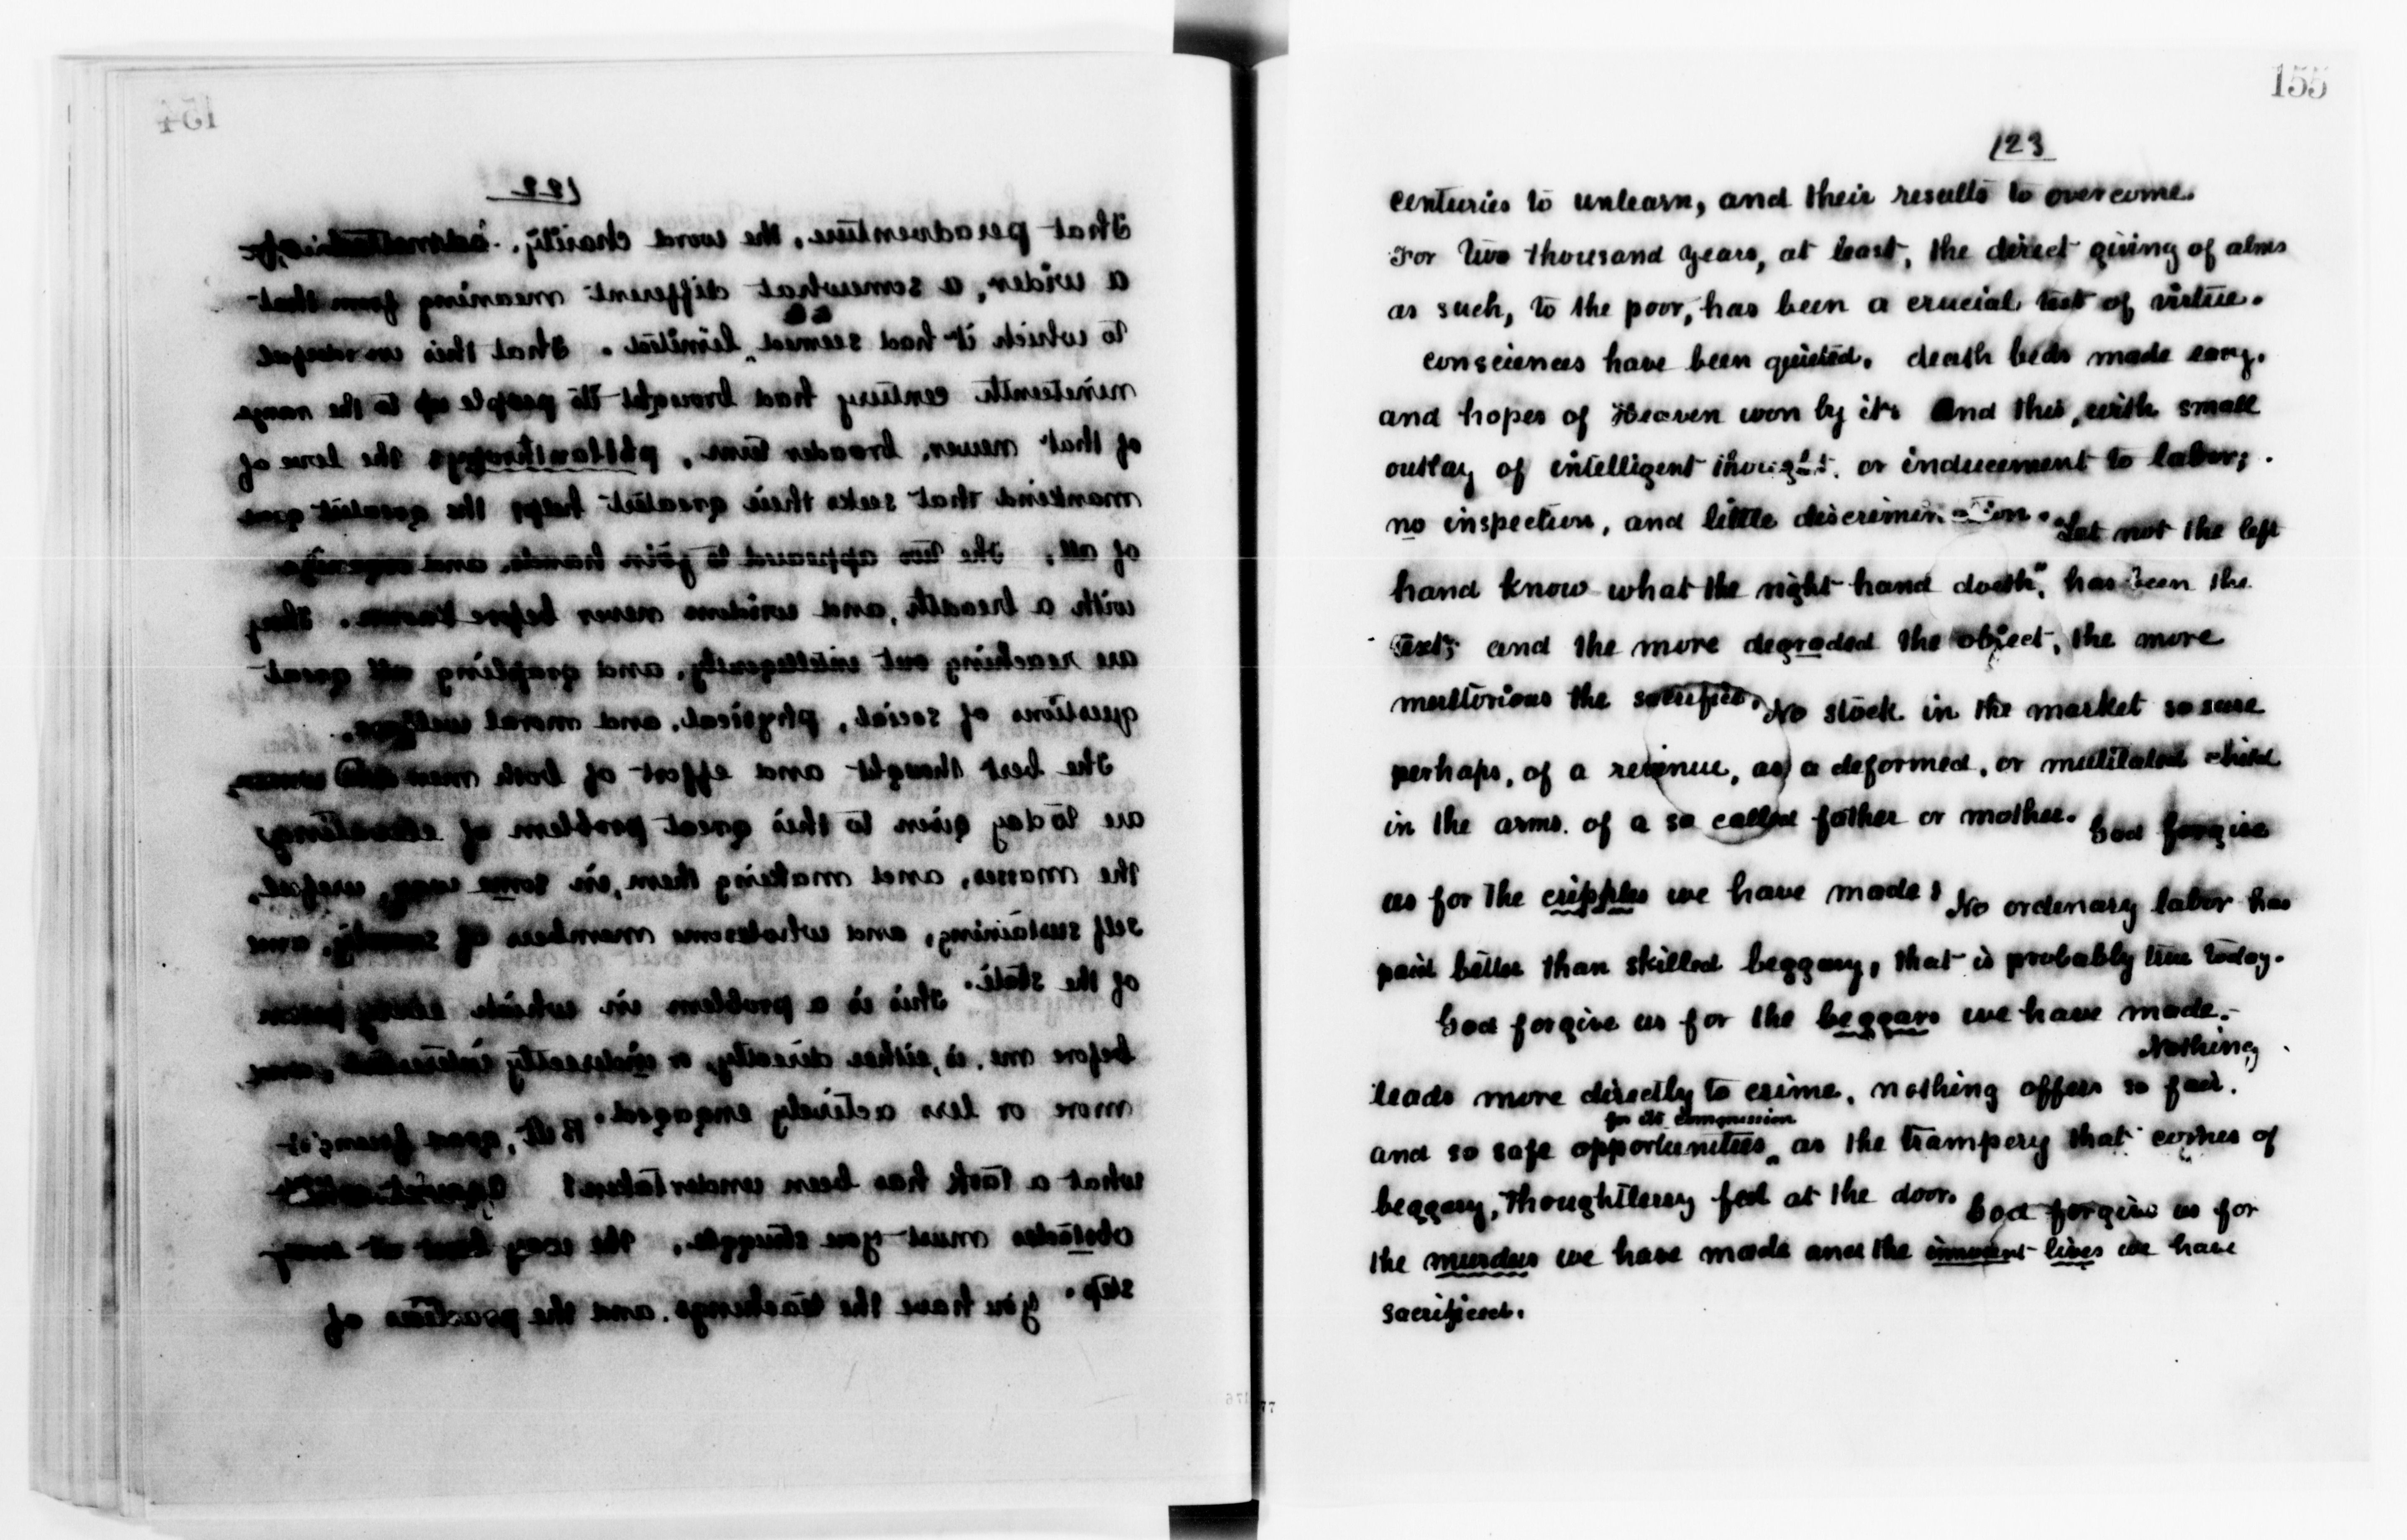 154
122
that peradventure, the word charity,
a wider, a somewhat different meaning from that
to which it had seemed limited. That this wonderful
nineteenth century had brought its people up to the range
of that newer, broader term, philanthropy the love of
mankind that seeks their greatest help, the greatest good
of all; The two appeared to join hands, and
with a breadth, and wisdom never before known. They
are reaching out intelligently, and grappling all great
questions of social, physical, and moral welfare.
The best thought and effort of both men and women,
are today given to this great problem of elevating
the masses, and making them, in some way, useful,
self sustaining, and wholesome members of society, and
of the state. This is a problem in which every person
before me, is, either directly, or indirectly interested, and
more or less actively engaged. But, good friends
what a task has been undertaken! Against what
obstacles must you struggle, the very best at every
step. You have the teachings, and the practices of
155
123
centuries to unlearn, and their results to overcome.
For two thousand years, at least, the direct giving of alms
as such, to the poor, has been a crucial test of virtue.
consciences have been quieted, death beds made easy,
and hopes of Heaven won by it. And this, with small
outlay of intelligent thought, or inducement to labor;
no inspection, and little discrimination. "Let not the left
hand know what the right hand doeth", has been the
text; and the more degraded the object, the more
meritorious the sacrifice. No stock in the market so sure
perhaps, of a revenue, as a deformed, or mutilated child
in the arms of a so called father or mother. God forgive
us for the cripples we have made! No ordinary labor has
paid better than skilled beggary, that is probably true today.
God forgive us for the beggars we have made.
Nothing
leads more directly to crime, nothing offers so fair,
for its commission
and so safe opportunities as the trampery that comes of
beggary, thoughtlessly fed at the door. God forgive us for
the murders we have made and the innocent lives we have
sacrificed.